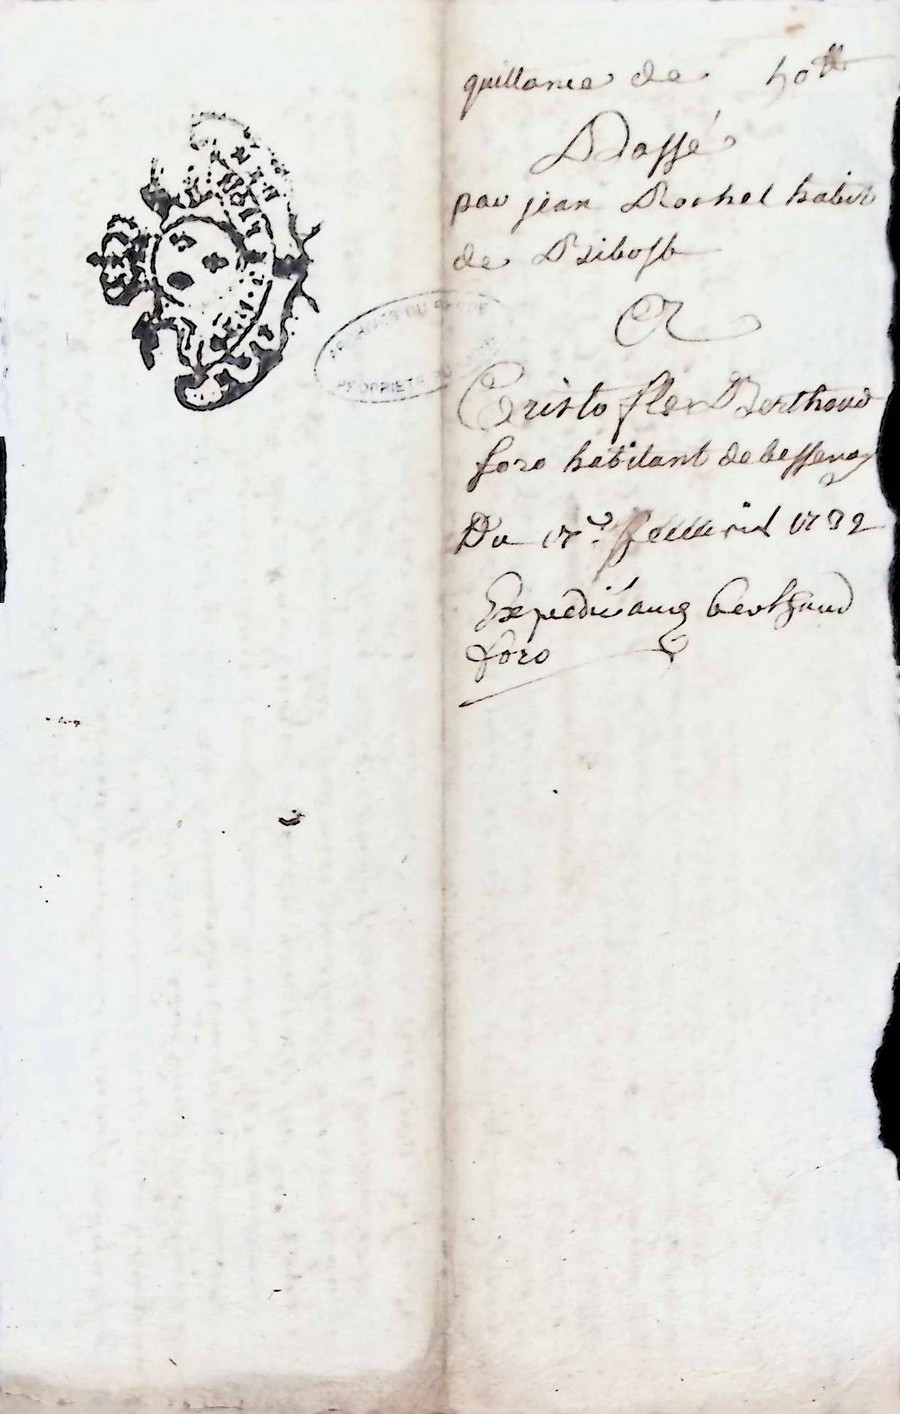 quittance de 50 ll
Passé
par jean Rochel habit
de Ribost
A
Cristofle Berthoud
foro habitant de bessenay
Du 17e 1732
Expedié aud berthoud
foro
PROPRIETE